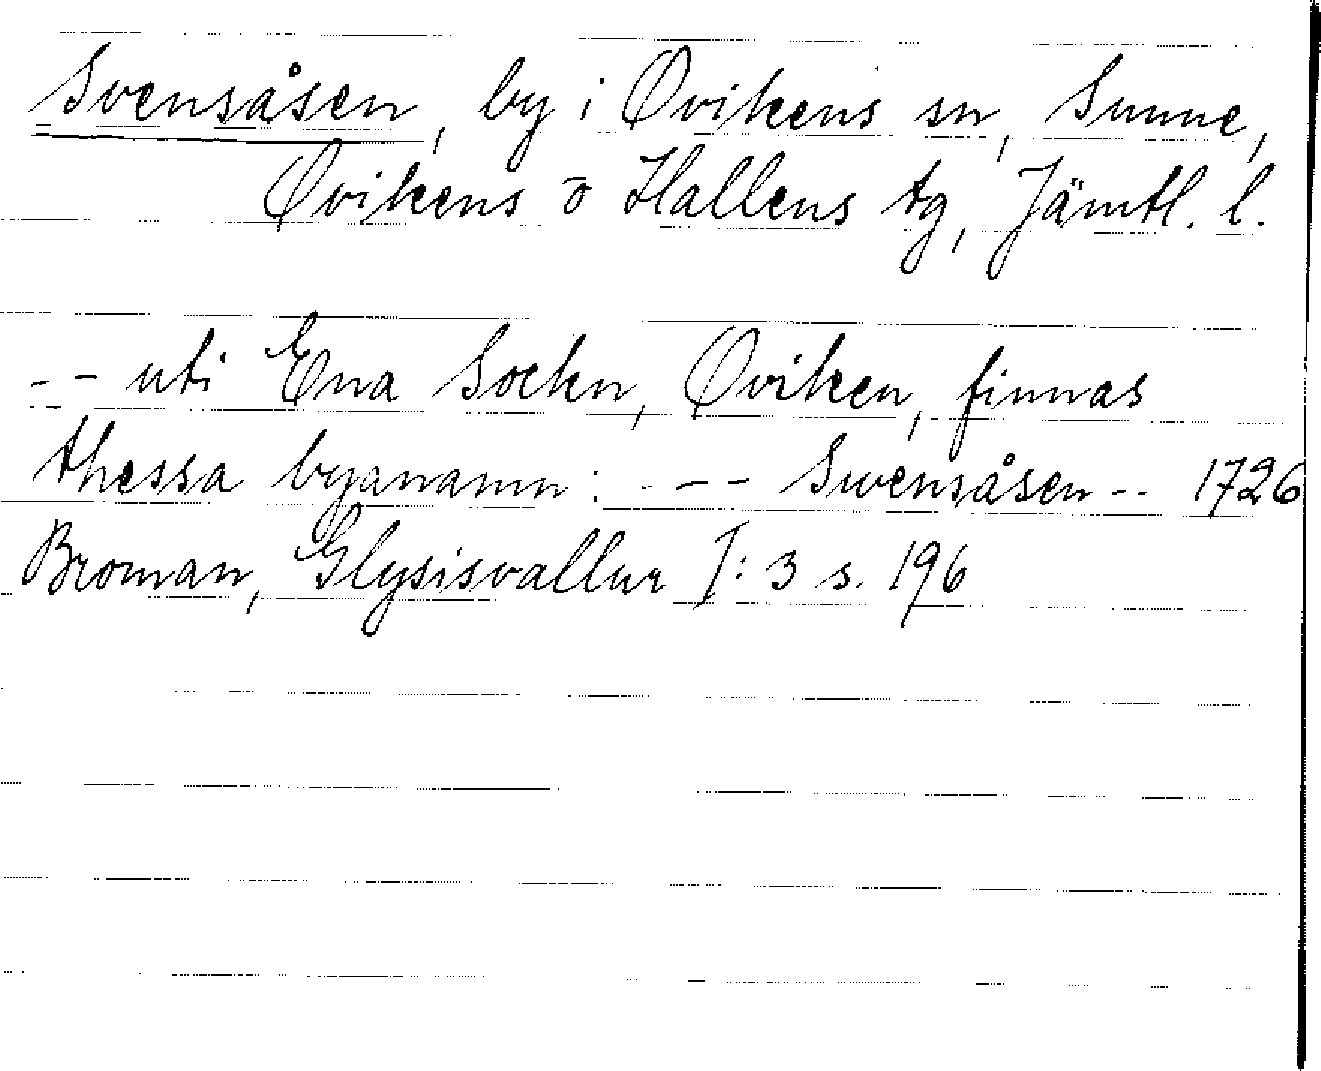 Svensåsen, by i Ovikens sn, Sunne,
Ovikens o Hallens tg, Jämtl. l.
-- uti Ena Sockn, Oviken, finnas
thessa byanamn: --- Swensåsen -- 1726
Broman, Glysisvallur I: 3 s. 196